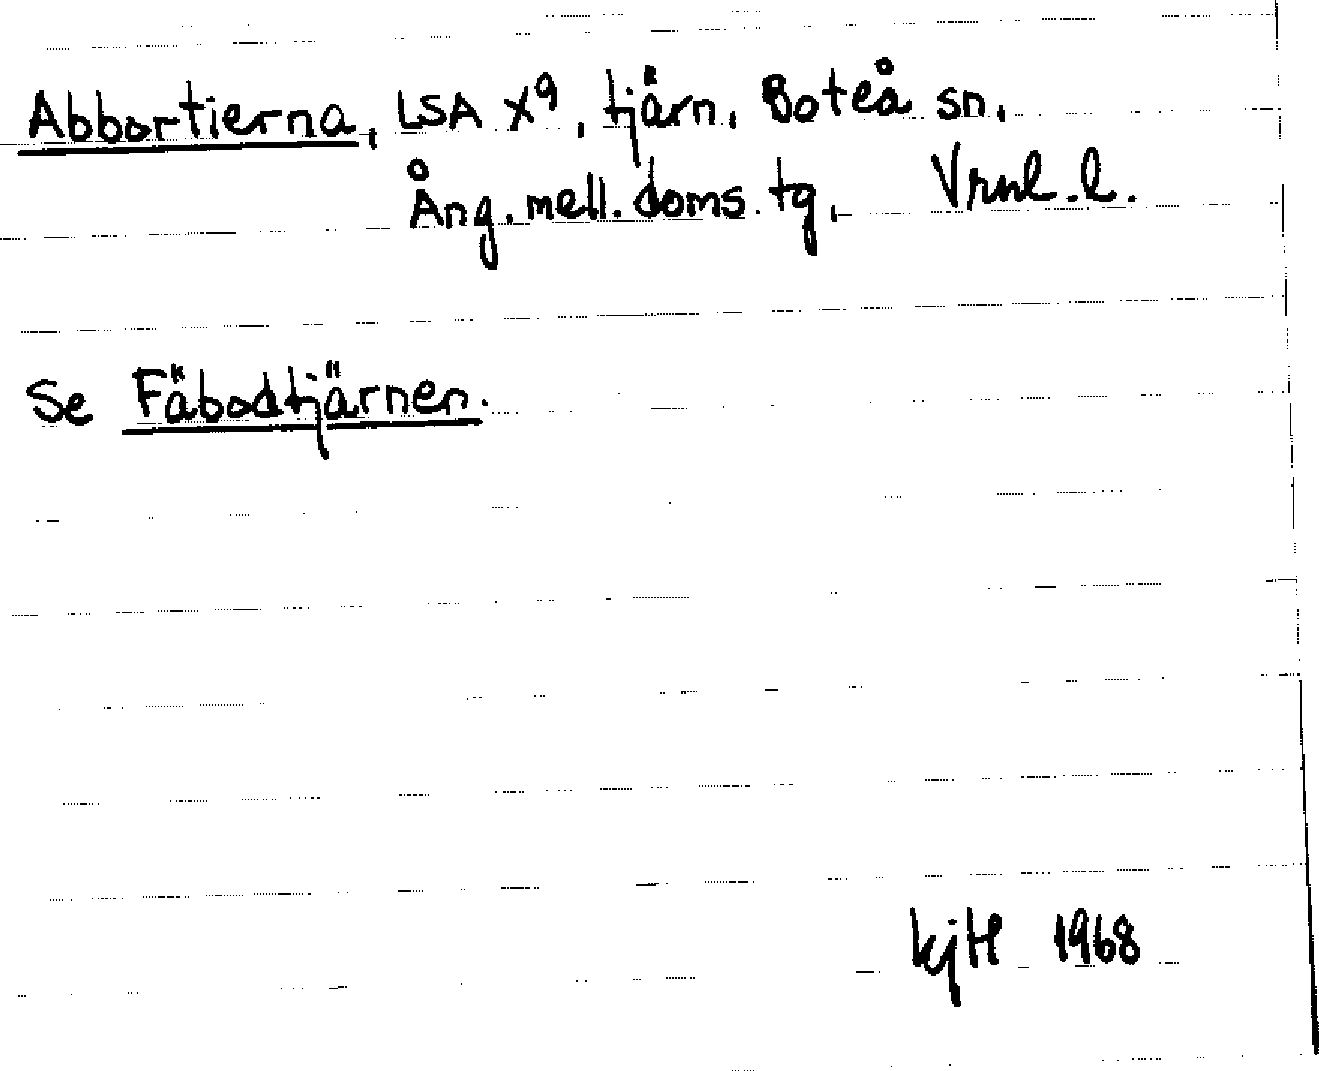 Abbortierna, LSA X9, tjärn, Boteå sn.
Ång. mell. doms. tg. Vrnl. l.
Se Fäbodtjärnen.
KjH 1968